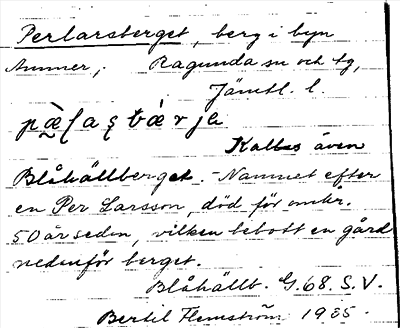 Perlarsberget, berg i byn
Ammer, Ragunda sn och tg,
Jämtl. l.
Kallas även
Blåhällberget. Namnet efter
en Per Larsson, död för omkr.
50 år sedan, vilken bebott en gård
nedenför berget.
Blåhällb. G.68. S.V.
Bertil Flemström 1935.